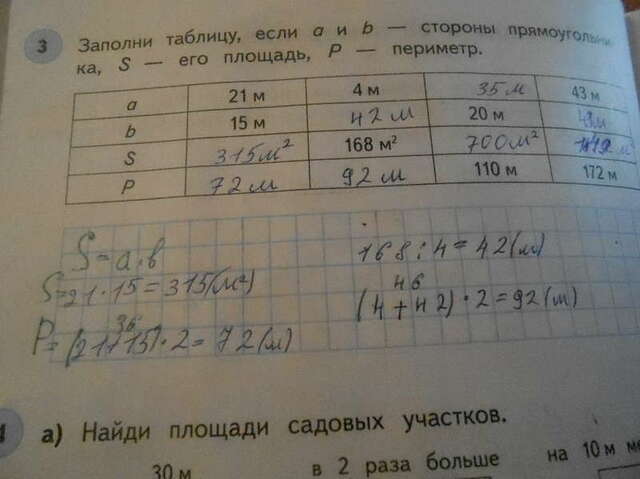 3 Заполни таблицу, если a и b — стороны прямоугольни
ка, S — его площадь, P — периметр.
a 21 м 4 м 35 м 43 м
b 15 м 42 м 20 м
S 315 м² 168 м² 700 м²
P 72 м 92 м 110 м 172 м
S = a · b
S = 21 · 15 = 315 (м²)
36
P = (21 + 15) · 2 = 72 (м)
168 : 4 = 42 (м)
46
(4 + 42) · 2 = 92 (м)
а) Найди площади садовых участков.
30 м в 2 раза больше на 10 м